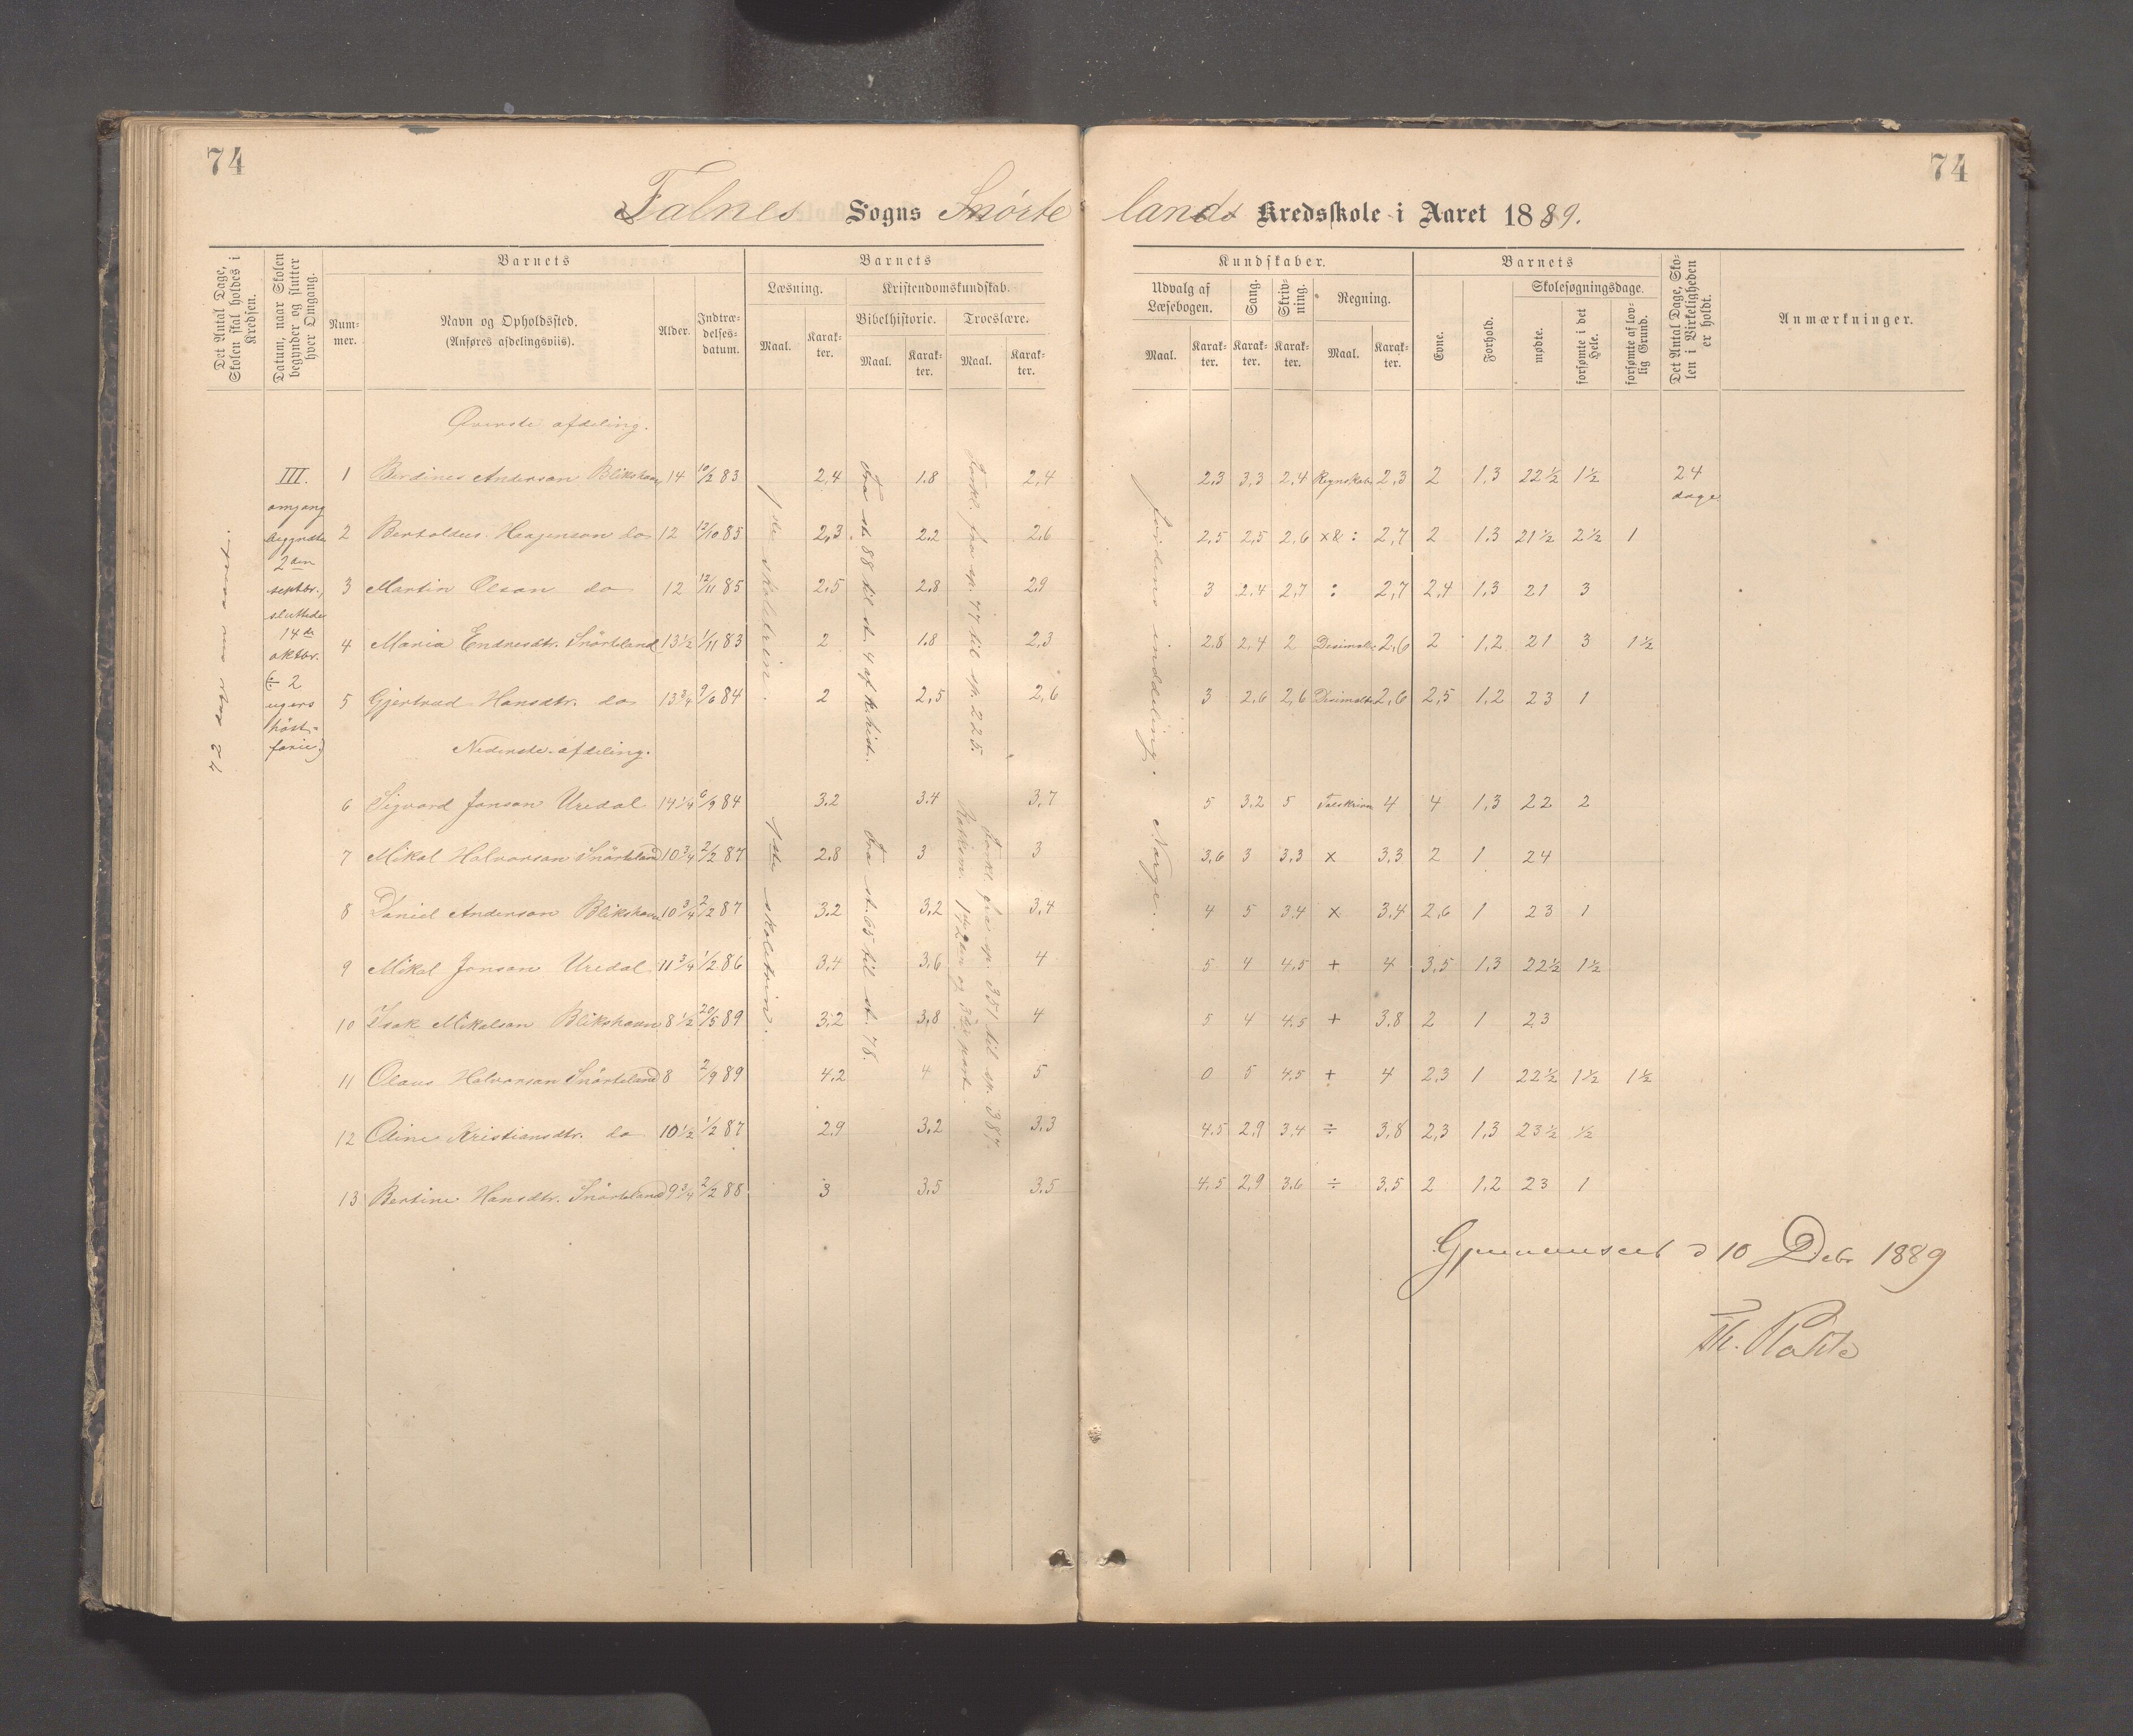 74
74
Falnes Sogns Snörte lands Kredsskole i Aaret 1889.
Det Antal Dage, Skolen skal holdes i Kredsen.
Datum, naar Skolen begynder og slutter hver Omgang.
Barnets
Num-mer.
Navn og Opholdssted.
(Anføres afdelingsviis).
Alder.
Indtræ-delses-datum.
Barnets
Læsning.
Maal.
Karak-ter.
Kristendomskundskab.
Bibelhistorie.
Maal.
Karak-ter.
Troeslære.
Maal.
Karak-ter.
Kundskaber.
Udvalg af Læsebogen.
Maal.
Karak-ter.
Sang.
Karak-ter.
Skriv-ning.
Karak-ter.
Regning.
Maal.
Karak-ter.
Barnets
Evne.
Forhold.
Skolesøgningsdage.
mødte.
forsømte i det Hele.
forsømte af lov-lig Grund.
Det Antal Dage, Sko-len i Virkeligheden er holdt.
Anmærkninger.
72 dage om aaret.
III.
omgang
begyndte
2den
septbr.,
sluttede
14de
oktbr.
(÷ 2
ugers
höst-
ferie)
Øverste afdeling.
1 Berdines Anderson Blikshavn 14 10/2 83 2,4 1.8 2,4 2,3 3,3 2,4 Regnskab 2,3 2 1,3 22 ½ 1½ 24 dage
2 Bertoldus Haagenson do 12 12/10 85 2,3 2.2 2,6 2,5 2,5 2,6 x & : 2,7 2 1.3 21 ½ 2 ½ 1
3 Martin Olson do 12 12/11 85 2,5 2.8 2,9 3 2,4 2,7 : 2,7 2,4 1,3 21 3
4 Maria Endresdtr. Snörteland 13 ½ 1/11 83 2 1.8 2,3 2,8 2,4 2 Desimalb. 2,6 2 1,2 21 3 1½
5 Gjertrud Hansdtr. do 13 ¾ 9/6 84 2 2,5 2,6 3 2,6 2,6 Desimalb. 2,6 2,5 1,2 23 1
1ste skoletrin.
Fra st. 88 til st. 4 af k. hist.
Forkl. fra sp. 77 til sp. 225.
Jordens inddeling. Norge.
Nederste afdeling.
6 Sigvard Jonson Uredal 14 ¼ 6/9 84 3.2 3.4 3,7 5 3,2 5 Talskrivn 4 4 1,3 22 2
7 Mikal Halvorson Snörteland 10 ¾ 2/2 87 2.8 3 3 3,6 3 3,3 x 3,3 2 1 24
8 Daniel Anderson Blikshavn 10 ¾ 2/2 87 3,2 3,2 3,4 4 5 3,4 x 3,4 2,6 1 23 1
9 Mikal Jonson Uredal 11 ¾ 1/2 86 3,4 3,6 4 5 4 4,5 + 4 3,5 1,3 22½ 1½
10 Isak Mikalson Blikshavn 8 ½ 20/5 89 3,2 3,8 4 5 4 4,5 + 3,8 2 1 23
11 Olaus Halvorson Snörteland 8 2/9 89 4,2 4 5 0 5 4,5 + 4 2,3 1 22½ 1½ 1½
12 Oline Kristiansdtr. do 10 ½ 1/2 87 2,9 3,2 3,3 4,5 2,9 3,4 ÷ 3,8 2,3 1,3 23½ ½
13 Bertine Hansdtr. Snörteland 9 ¾ 2/2 88 3 3,5 3,5 4,5 2,9 3.6 ÷ 3,5 2 1,2 23 1
1ste skoletrin.
Fra st. 65 til st. 78.
Forkl. fra sp. 351 til sp. 387.
Katekism. 1ste 2den og 3die part.
Gjennemseet d 10 Debr 1889